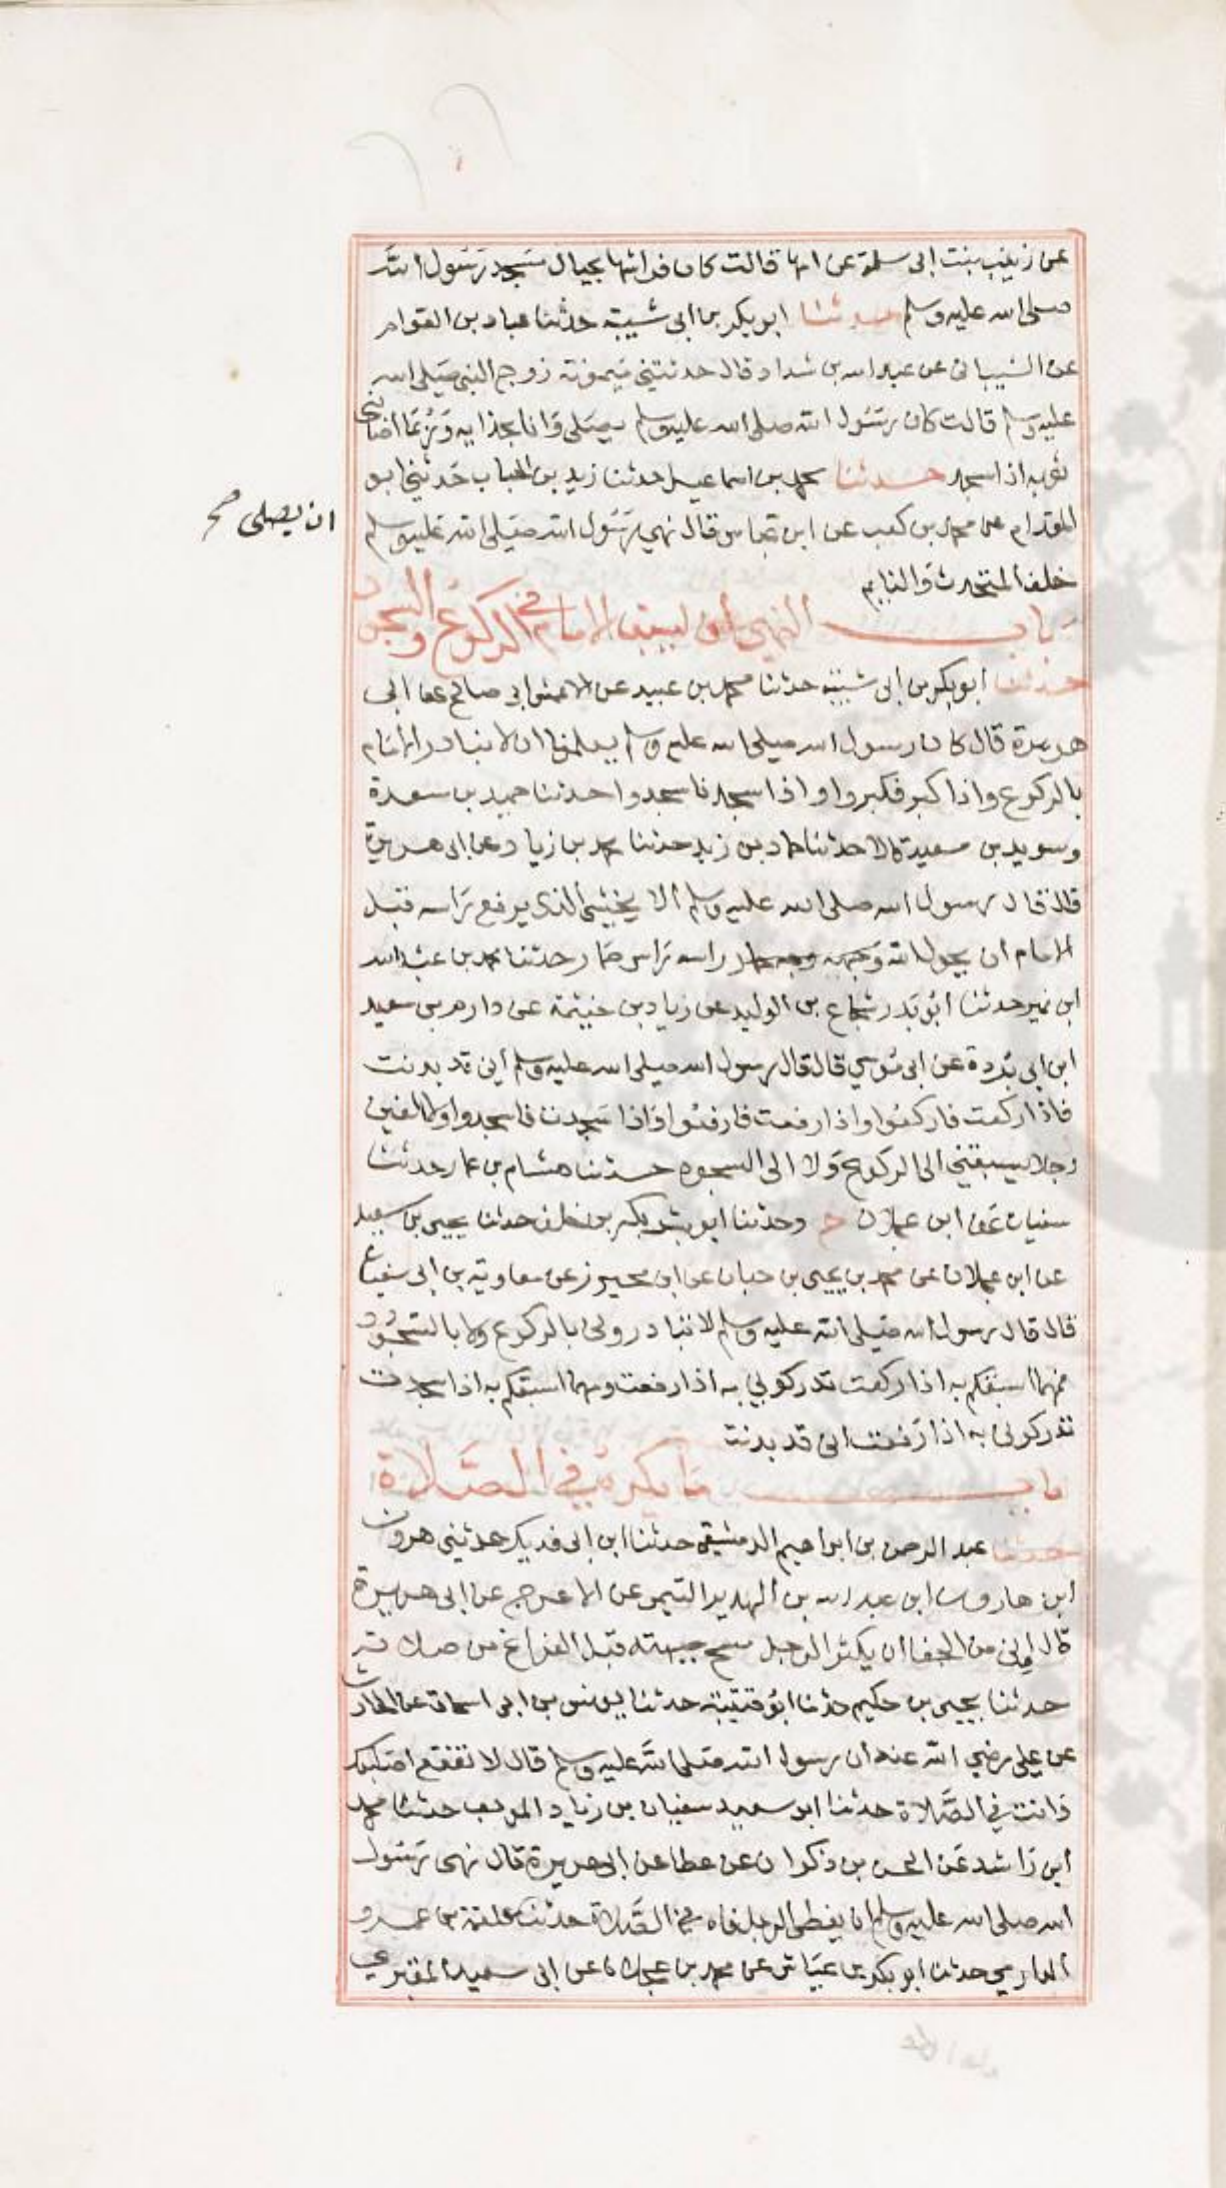 عن زينب بنت ابى سلمة عن امها قالت كان فراشها بحيال مَسجد رَسُول الله
صلى الله عليه وسلم حدثنا ابو بكر بن ابى شيبة حدثنا عباد بن العوام
عن الشيبانى عن عبد الله بن شداد قال حدثتنى مَيمونة زوج النبى صَلى الله
عليه وسلم قالت كان رسُول الله صلى الله عليه وسلم يصَلى وَانا بحذايه وَرُبمَا اصَابنى
ثوبه اذا سجد حدثنا محمد بن اسماعيل حدثنا زيد بن الحباب حَدثنى ابو
المقدام عن محمد بن كعب عن ابن عباس قال نهى رَسُول الله صَلى الله عَليه وسلم
ان يصلى صح
خلف المتحدث وَالنايم
بَاب النهى أن يسبق الامَام فى الركوُع والسجود
حدثنا ابو بكر بن ابى شيبة حدثنا محمد بن عبيد عن الاعمش ابى صالح عن ابى
هريرة قال كان رسول الله صلى الله عليه وسلم يعلمنا ان لا نبادر الامَام
بالركوع واذا كبر فكبروا واذا سجد فاسجدوا حدثنا حميد بن سعدة
وسويد بن سعيد قالا حدثنا حماد بن زيد حدثنا محمد بن زياد عن ابى هريرة
قال قال رسول الله صلى الله عليه وسلم ألا يخشى الذى يرفع رَاسه قبل
الامام ان يحول الله راسه رَاس حمَار حدثنا محمد بن عبد الله
ابن نمير حدثنا ابُو بَدر شجاع بن الوليد عن زياد بن خيثمة عن دارم بن سعيد
ابن ابى بُردة عن ابى مُوسى قال قال رسول الله صلى الله عليه وسلم إنى قد بدنت
فاذا ركعت فاركعُوا واذا رفعت فارفعُوا وَاذا سَجدت فاسجدوا ولا الفين
رَجلا يسبقنى الى الركوع وَلا الى السجود حدثنا هشام بن عمار حدثنا
سفيان عَن ابن عجلان ح وحدثنا ابو بشر بكر بن خلف حدثنا يحيى بن سعيد
عن ابن عجلان عن محمد بن يحيى بن حبان عن ابن محيريز عن معاوية بن ابى سفيان
قال قال رسول الله صَلى الله عليه وسلم لا تبادرونى بالركوع ولا بالسُّجُود
فمهما اسبقكم به اذا ركعت تدركونى به اذا رفعت ومهما اسبقكم به اذا سجدت
تدركونى به اذا رَفعت انى قد بدنت
باب مَا يكره فى الصَّلاة
حدثنا عبد الرحمن بن ابراهيم الدمشقى حدثنا ابن ابى فديك حدثنى هرون
ابن هارون ابن عبد الله بن الهدير التيمى عن الاعرج عن ابى هريرة
قال إن من الجفا ان يكثر الرجل مسح جبهته قبل الفراغ من صلاته
حدثنا يحيى بن حكيم حدثنا ابُو قتيبة حدثنا يونس بن ابى اسحاق عن الحارث
عن على رضى الله عنه ان رسول الله صَلى الله عليه وسلم قال لا تفقع اصَابعك
وَانت فى الصَّلاة حدثنا ابو سعيد سفيان بن زياد المودب حدثنا محمد
ابن رَاشد عَن الحسن بن ذكوان عن عطا عن ابى هريرة قال نهى رَسُول
الله صلى الله عليه وسلم ان يغطى الرجل فاه فى الصَّلاة حدثنا علقمة بن عمرو
الدارمى حدثنا ابو بكر بن عيَّاش عن محمد بن عجلان عن ابى سعيد المقبرى